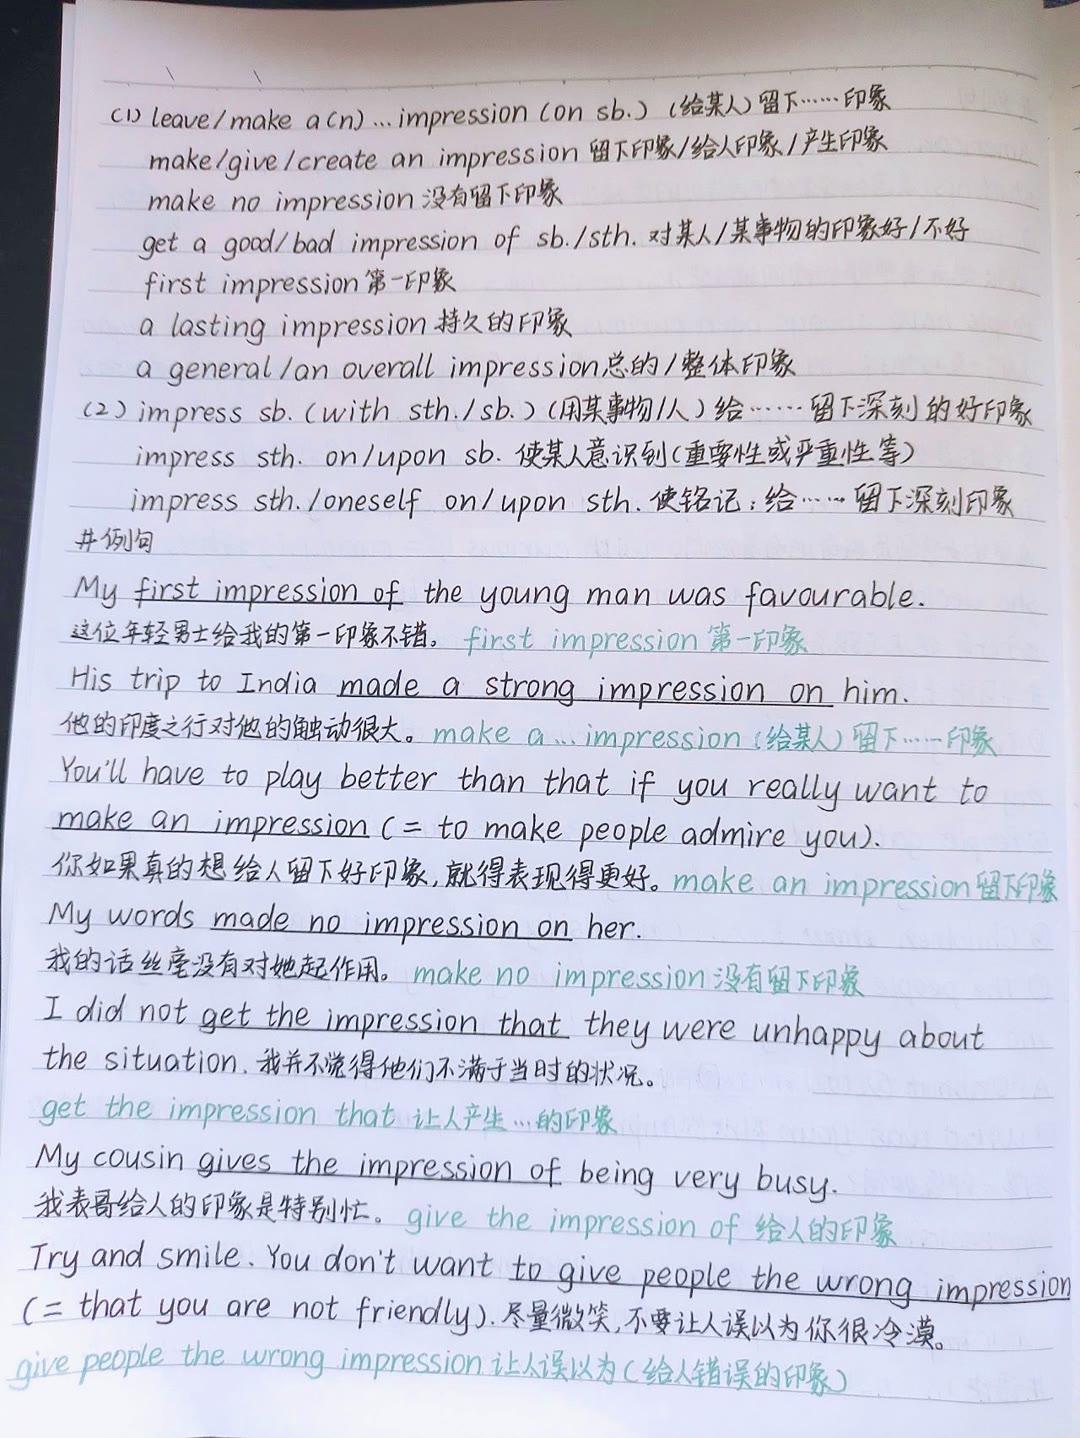 (1) leave/make a(n)...impression (on sb.) (给某人)留下……印象
make/give/create an impression 留下印象/给人印象/产生印象
make no impression 没有留下印象
get a good/bad impression of sb./sth. 对某人/某事物的印象好/不好
first impression 第一印象
a lasting impression 持久的印象
a general/an overall impression 总的/整体印象
(2) impress sb. (with sth./sb.) (用某事物/人)给……留下深刻的好印象
impress sth. on/upon sb. 使某人意识到(重要性或严重性等)
impress sth./oneself on/upon sth. 使铭记;给……留下深刻印象
#例句
My first impression of the young man was favourable.
这位年轻男士给我的第一印象不错。 first impression 第一印象
His trip to India made a strong impression on him.
他的印度之行对他的触动很大。 make a...impression (给某人)留下……印象
You'll have to play better than that if you really want to
make an impression (= to make people admire you).
你如果真的想给人留下好印象,就得表现得更好。 make an impression 留下印象
My words made no impression on her.
我的话丝毫没有对她起作用。 make no impression 没有留下印象
I did not get the impression that they were unhappy about
the situation. 我并不觉得他们不满于当时的状况。
get the impression that 让人产生…的印象
My cousin gives the impression of being very busy.
我表哥给人的印象是特别忙。 give the impression of 给人的印象
Try and smile. You don't want to give people the wrong impression
(= that you are not friendly). 尽量微笑,不要让人误以为你很冷漠。
give people the wrong impression 让人误以为(给人错误的印象)